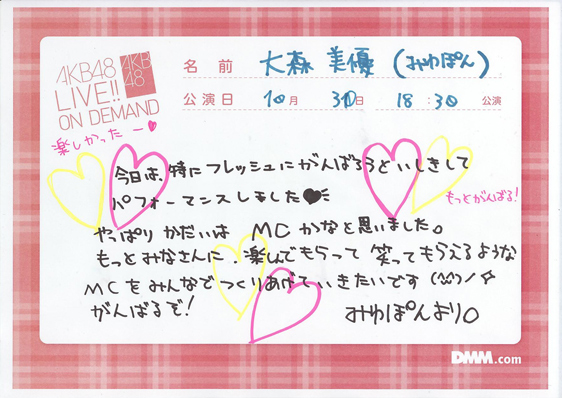 AKB48
LIVE!!
ON DEMAND
AKB
48
名前 大森美優(みゆぽん)
公演日 10月 31日 18:30 公演
楽しかったー♡
今日は、特にフレッシュにがんばろうといしきして
パフォーマンスしました♥
もっとがんばる!
やっぱりかだいは MCかなと思いました。
もっとみなさんに、楽しんでもらって 笑ってもらえるような
MCをみんなでつくりあげていきたいです(^^)ノ✧
がんばるぞ!
みゆぽんより○
DMM.com